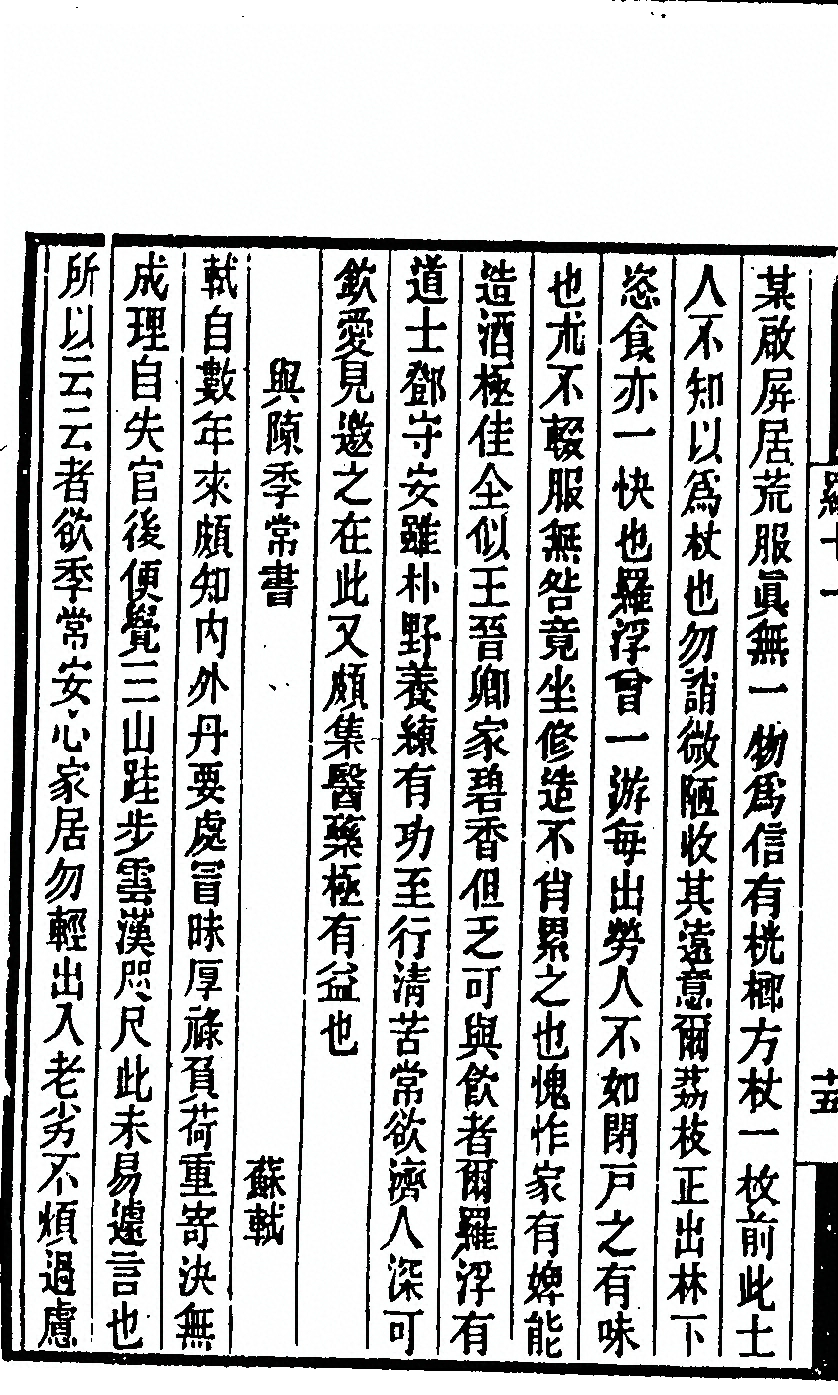 某啟屏居荒服眞無一物爲信有桄榔方杖一枚前此士
人不知以爲杖也勿誚微陋收其遠意爾荔枝正出林下
恣食亦一快也羅浮曾一游每出勞人不如閉戸之有味
也朮不輟服無咎竟坐修造不肖累之也愧怍家有婢能
造酒極佳全似王晉卿家碧香但乏可與飲者爾羅浮有
道士鄧守安雖朴野養練有功至行淸苦常欲濟人深可
欽愛見邀之在此又頗集醫藥極有益也
與陳季常書
蘇軾
軾自數年來頗知内外丹要處冒昧厚祿負荷重寄決無
成理自失官後便覺三山跬步雲漢咫尺此未易遽言也
所以云云者欲季常安心家居勿輕出入老劣不煩過慮
十五